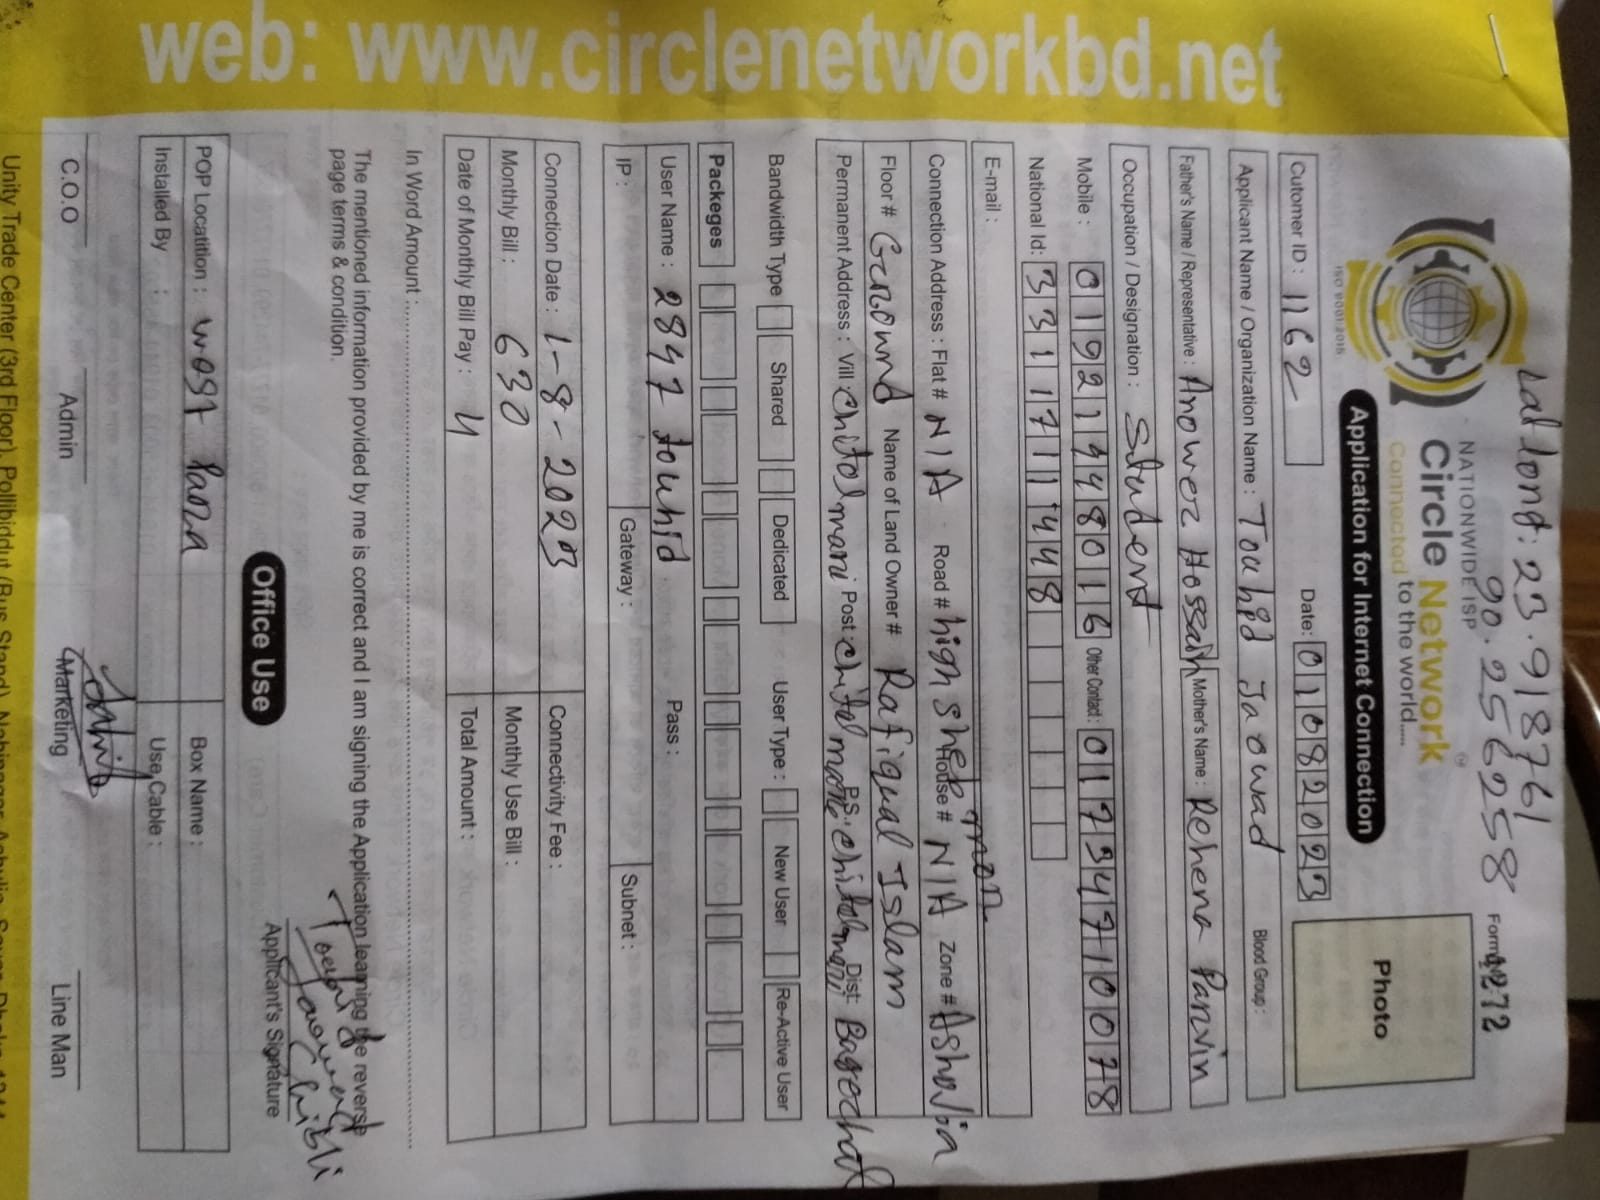 Lat long: 23.918761
90.256258
Form# 1272
NATIONWIDE ISP
Circle Network
Connected to the world.....
ISO 9001:2015
Application for Internet Connection
Photo
Cutomer ID : 1162 Date: 01082023
Applicant Name / Organization Name : Touhid Jaowad Blood Group :
Father's Name / Representative : Anower Hossain Mother's Name : Rehena Parvin
Occupation / Designation : Student
Mobile : 01921948016 Other Contact : 01734710078
National Id: 3311711448
E-mail :
Connection Address : Flat # N/A Road # high shep House # N/A Zone # Ashulia
Floor # Ground Name of Land Owner # Rafiqual Islam
Permanent Address : Vill Chitolmari Post chitolmari P.S. chitolmari Dist: Bagerhat
Bandwidth Type Shared Dedicated User Type : New User Re-Active User
Packeges
User Name : 2847 touhid Pass :
IP : Gateway : Subnet :
Connection Date : 1-8-2023 Connectivity Fee :
Monthly Bill : 630 Monthly Use Bill :
Date of Monthly Bill Pay : 4 Total Amount :
In Word Amount :
The mentioned information provided by me is correct and I am signing the Application leaming the reverse
page terms & condition.
Applicant's Signature
Office Use
POP Locatition : west Para Box Name :
Installed By : Use Cable :
C.O.O Admin Marketing Line Man
Unity Trade Center (3rd Floor), Pollibiddut (Bus Stand),
web: www.circlenetworkbd.net